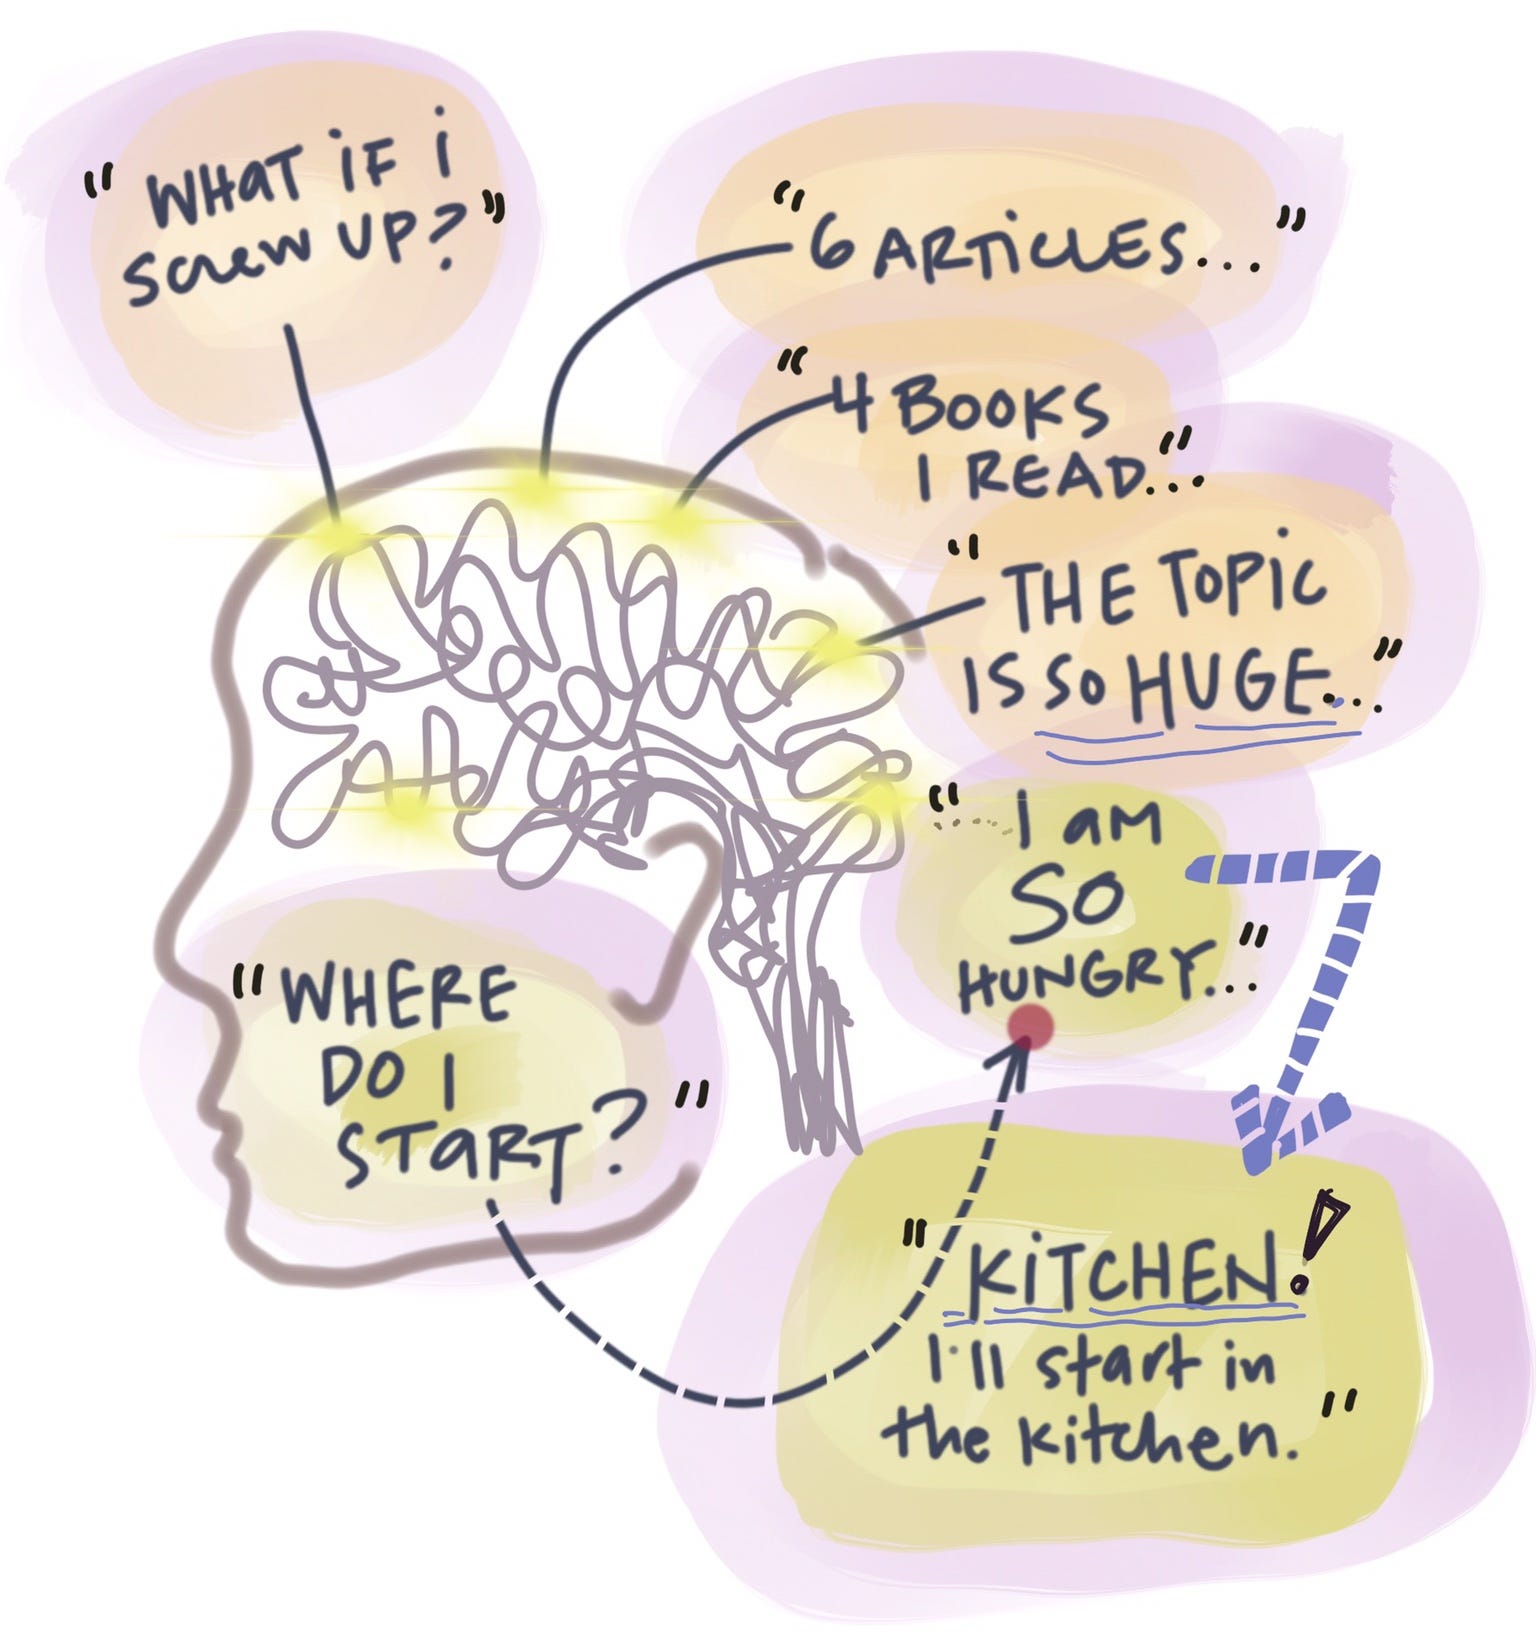 "WHAT iF i
SCREW UP?"
"6 ARTiCLES..."
"4 BOOKS
I READ..."
"THE TOPiC
IS SO HUGE..."
"I AM
SO
HUNGRY..."
"WHERE
DO I
START?"
"KiTCHEN!
I'll start in
the kitchen."